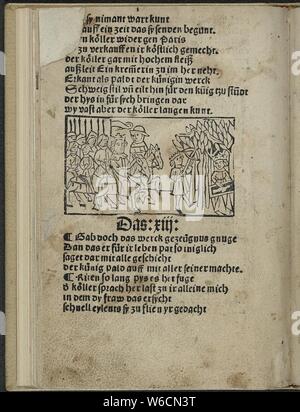 sy nimant wart kunt
auff ein zeit das sy senden begunt.
in köller wider gen Paris
zu verkauffen ir köstlich gemecht.
der köller gar mit hochem fleiß
außleit Ein kremer in zu im her nehr.
Erkant als pald der künigin werck
Schweig stil vn̄ eilt hin für den küig zu stüdt
der hys in für sych bringen dar
wy vast aber der köller laugen kunt.
Das: xiij:
¶ Gab doch das werck gezeügnus gnuge
Dan das er für ir leben par so iniglich
saget dar mit alle geschicht
der künig pald auff mit aller seiner machte.
¶ Riten so lang pys es het fuge
köller sprach her last zu ir alleine mich
in dem dy fraw das ersicht
schnell eylents sy zu flien yr gedacht
alamy
Image ID: W6CN3T
www.alamy.com